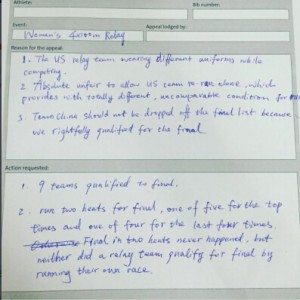 Athlete:
Bib number:
Event:
Women's 4x100m Relay
Appeal lodged by:
Reason for the appeal
1. The US relay team wearing different uniforms while
competing.
2. Absolute unfair to allow US team re-run alone, which
provides with totally different, uncomparable conditions for
3. Team China should not be dropped off the final list because
we rightfully qualified for the final.
Action requested:
1. 9 teams qualified to final.
2. run two heats for final, one of five for the top
times and one of four for the last four times.
Final in two heats never happened, but
neither did a relay team qualify for final by
running their own race.